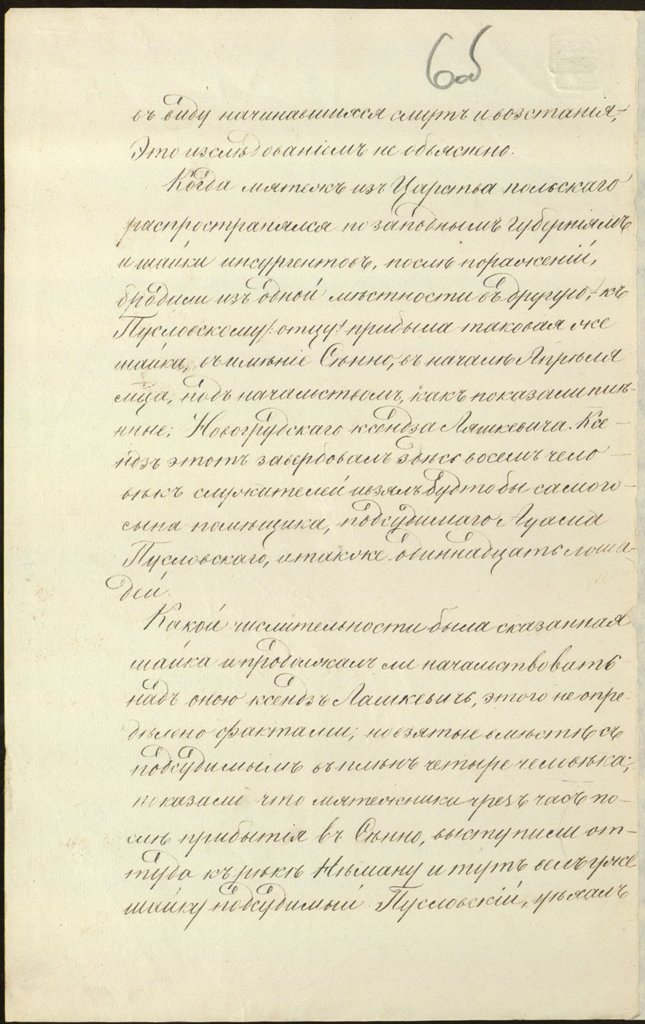 65
въ виду начинавшихся смутъ и возстанія,
Это изслѣдованіемъ не объяснено.
Когда мятежъ изъ Царства польскаго
распространялся по западнымъ губерніямъ
и шайки инсургентовъ, послѣ пораженій,
бродили изъ одной мѣстности въ другую, къ
Пусловскому /: отцу :/ прибыла таковая же
шайка, въ имѣніе Сѣнно, въ началѣ Апрѣля
мца, подъ начальствомъ, какъ показали плѣ-
нные, Новогрудскаго ксендза Ляшкевича. Ксе-
ндзъ этотъ завербовалъ здѣсь восемь чело-
вѣкъ служителей и взялъ будто бы самого
сына помѣщика, подсудимаго
Пусловскаго, а также одиннадцать лоша-
дей.
Какой числительности была сказанная
шайка и продолжалъ ли начальствовать
надъ оною ксендзъ Ляшкевичъ, этого не опре-
дѣлено фактами; но взятые вмѣстѣ съ
подсудимымъ въ плѣнъ четыре человѣка,
показали что мятежники чрезъ часъ по-
слѣ прибытія въ Сѣнно, выступили от-
туда къ рѣкѣ Нѣману и тутъ велъ уже
шайку подсудимый Пусловскій,